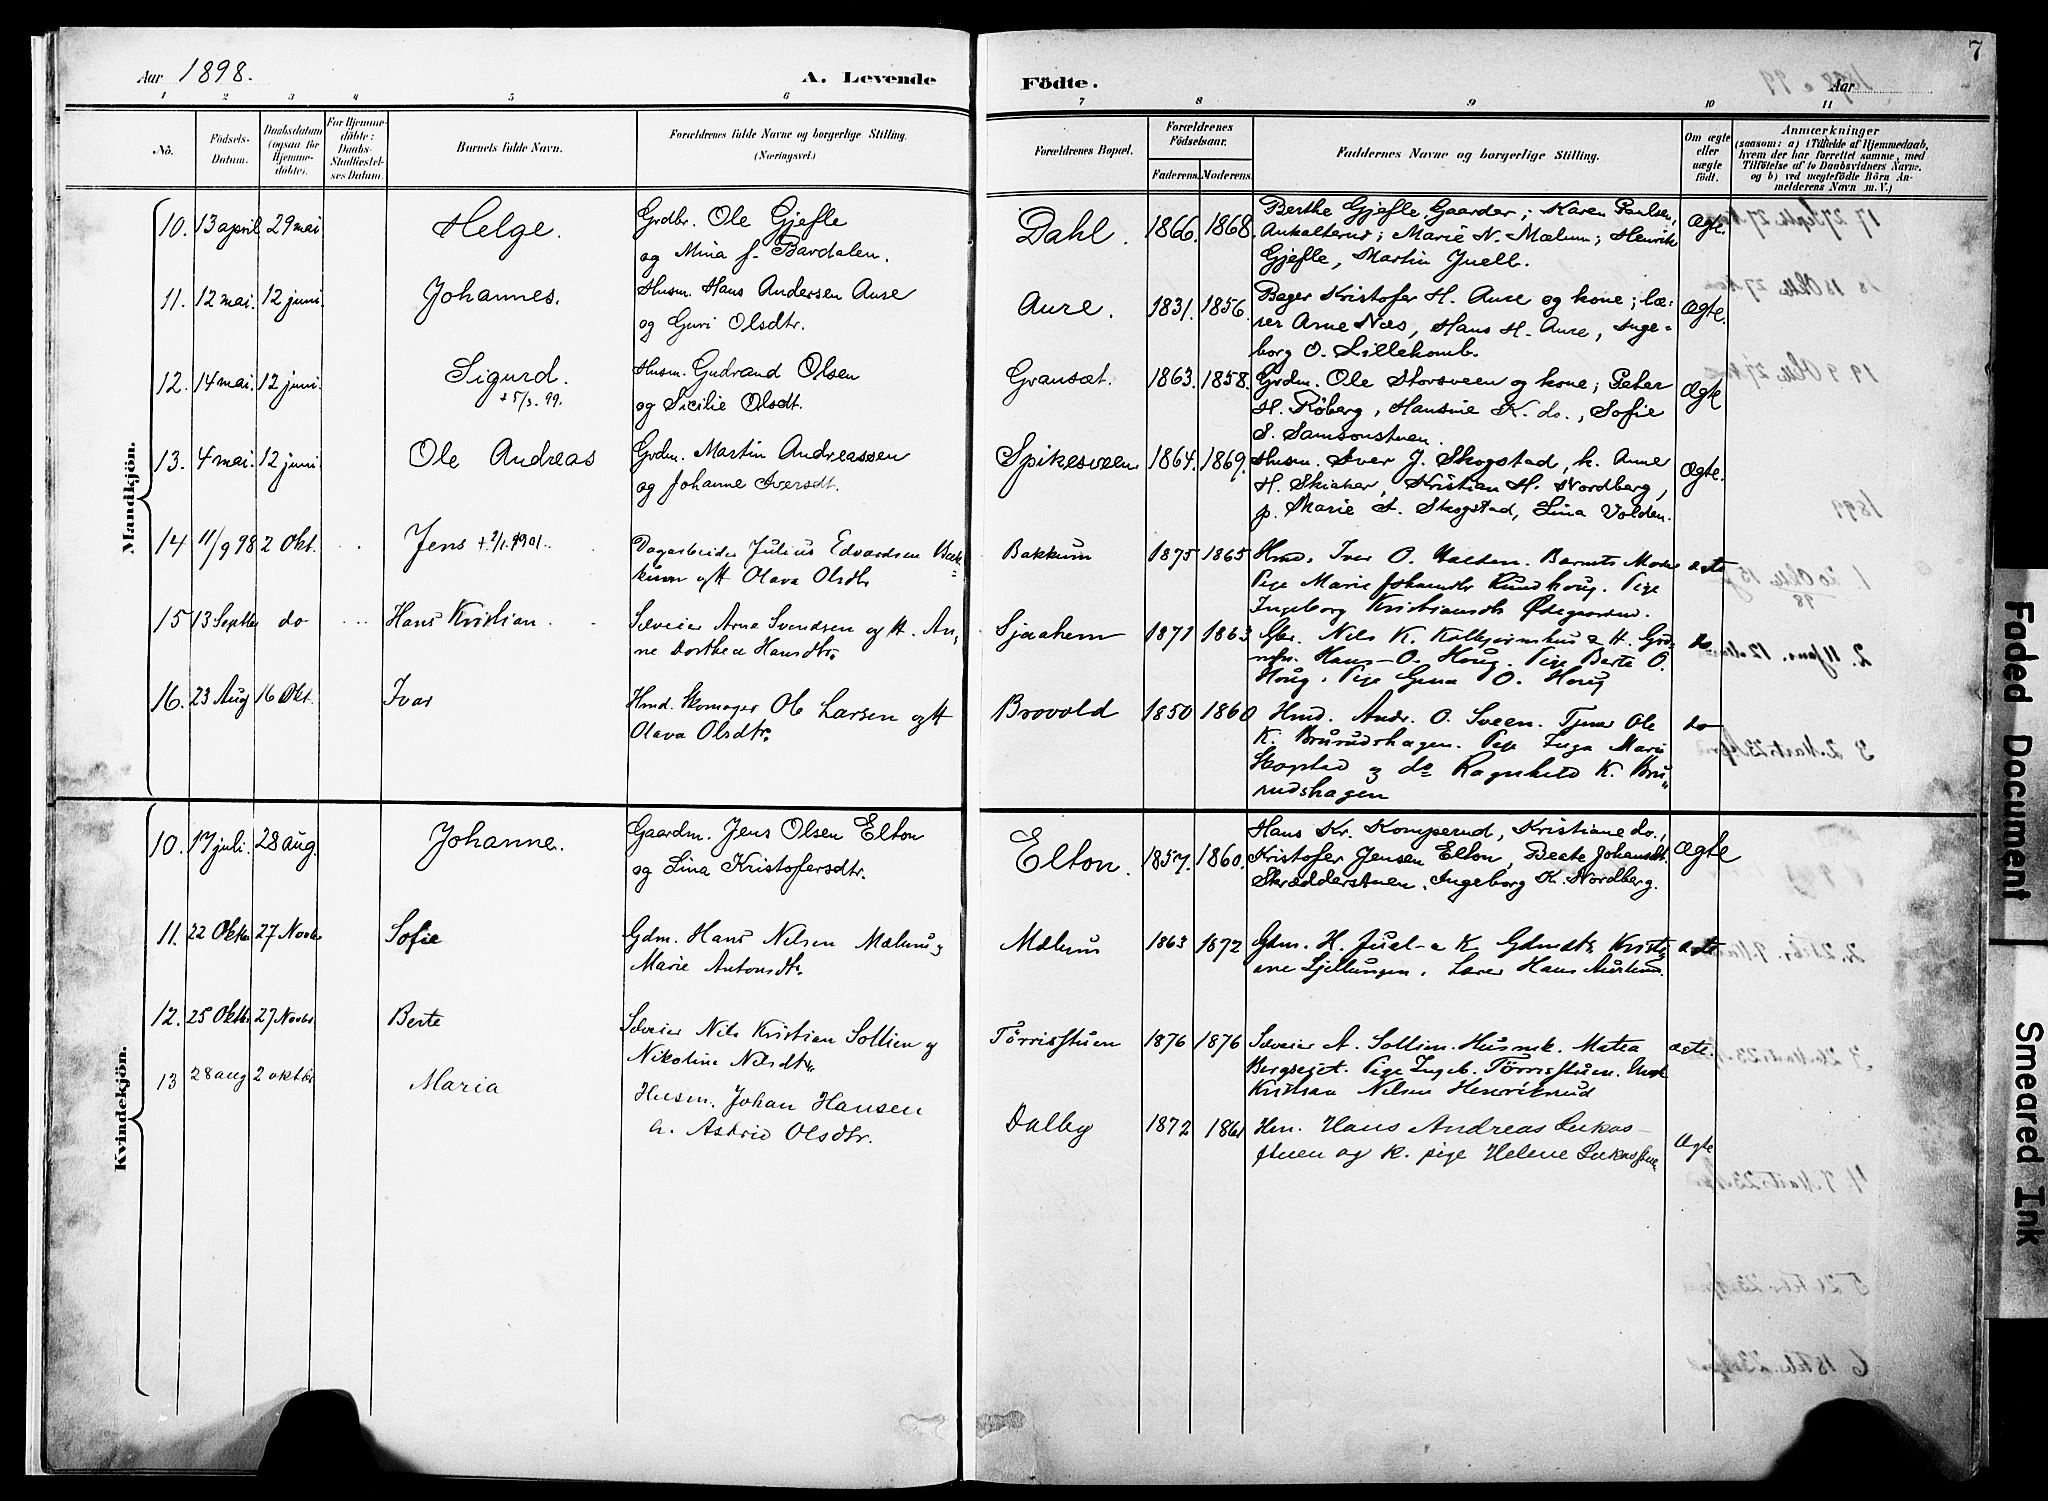 7
Aar 1898.
A. Levende
Födte.
Aar
1 2 3 4 5 6 7 8 9 10 11
Nô.
Födsels-
Datum.
Daabsdatum
(ogsaa for
Hjemme-
döbte).
For Hjemme-
döbte:
Daabs-
Stadfæstel-
ses Datum.
Barnets fulde Navn.
Forældrenes fulde Navne og borgerlige Stilling.
(Næringsvei.)
Forældrenes Bopæl.
Forældrenes
Födselsaar.
Faderens. Moderens.
Faddernes Navne og borgerlige Stilling.
Om ægte
eller
uægte
födt.
Anmærkninger
(saasom: a) i Tilfælde af Hjemmedaab,
hvem der har forrettet samme, med
Tilföielse af to Daabsvidners Navne,
og b) ved uægtefödte Börn An-
melderens Navn m. V.)
Mandkjön.
10. 13 april 29 mai Helge. Grdbr. Ole Gjefle
og Mina f. Bardalen.
Dahl. 1866. 1868. Berthe Gjefle, Gaarder; Karen Paulsen,
Ankalterud; Marie N. Mælum; Henrik
Gjefle, Martin Juell.
Ægte.
11. 12 mai. 12 juni. Johannes. Husm. Hans Andersen Aure
og Guri Olsdtr.
Aure. 1831. 1856. Bager Kristofer H. Aure og kone; læ-
rer Arne Næs, Hans H. Aure, Inge-
borg O. Lillekomb.
Ægte.
12. 14 mai. 12 juni. Sigurd.
+ 5/3. 99.
Husm. Gudrand Olsen
og Sicilie Olsdt.
Gransæt. 1863. 1858. Grdm. Ole Storsveen og kone; Peter
H. Röberg, Hansine K. do., Sofie
S. Samsonstuen.
Ægte
13. 4 mai. 12 juni. Ole Andreas Grdm. Martin Andreassen
og Johanne Iversdt.
Spikesveen 1864. 1869. Husm. Iver J. Skogstad, k. Anne
H. Skiaker, Kristian H. Nordberg,
p. Marie A. Skogstad, Lina Volden.
Ægte.
14 11/9 98 2 Okt. Jens Dagarbeider Julius Edvardsen Bak-
kum og H Olava Olsdtr
Bakkum 1875 1865 Hmd. Iver O. Barnets Moder
Pige Marie Johansdtr Rundhoug. Pige
Ingeborg Kristiansdtr Ødegaarden.
ægte
15 13 Septbr do Hans Kristian Sæveier Arne Svendsen og H. An-
ne Dorthea Hansdtr.
Sjaahem 1871 1863 Gbr. Nils K. Kolbjørnshus & H. Grd-
Hans O. Houg. Pige Berte O.
Houg. Pige Gina O. Houg
do
16. 23 Aug 16 Okt. Ivar Hmd. Skomager Ole Larsen og H
Olava Olsdtr.
Brovold 1850 1860 Hmd. Andr. O. Sveen. Tjener Ole
K. Brurudshagen. Pige Inga Marie
Skogstad og do Ragnhild K. Bru-
rudshagen
do
Kvindekjön.
10. 17 juli. 28 aug. Johanne. Gaardm. Jens Olsen Elton
og Lina Kristofersdtr.
Elton. 1857. 1860. Hans Kr. Komperud, Kristiane do.,
Kristofer Jensen Elton, Beate Johansdt.
Skrædderstuen, Ingeborg K. Nordberg.
Ægte
11. 22 Oktbr 27 Novbr Sofie Gdm. Hans Nilsen Mælum og
Marie Antonsdtr
Mælum 1863 1872 Gdm. H. Juel & K. Gdmdtr Kristi-
ane Ljellungen. Lærer Hans
ægte
12. 25 Oktbr 27 Novbr Berte Sæveier Nils Kristian Sollien og
Nikoline Nilsdtr
Tørrisstuen 1876 1876 Sæveier A. Sollien. Husmk. Matea
Bergseget. Pige Ingeb. Tørrisstuen. Ungk
Kristian Nilsen Henriksrud
ægte.
13 28 aug 2 oktbr Maria Husm. Johan Hansen
h. Astrid Olsdtr.
Dalby 1872 1861 Hm. Hans Andreas Lukas-
stuen og k. pige Helene Lukasstuen
Ægte
Faded Document
Smeared Ink